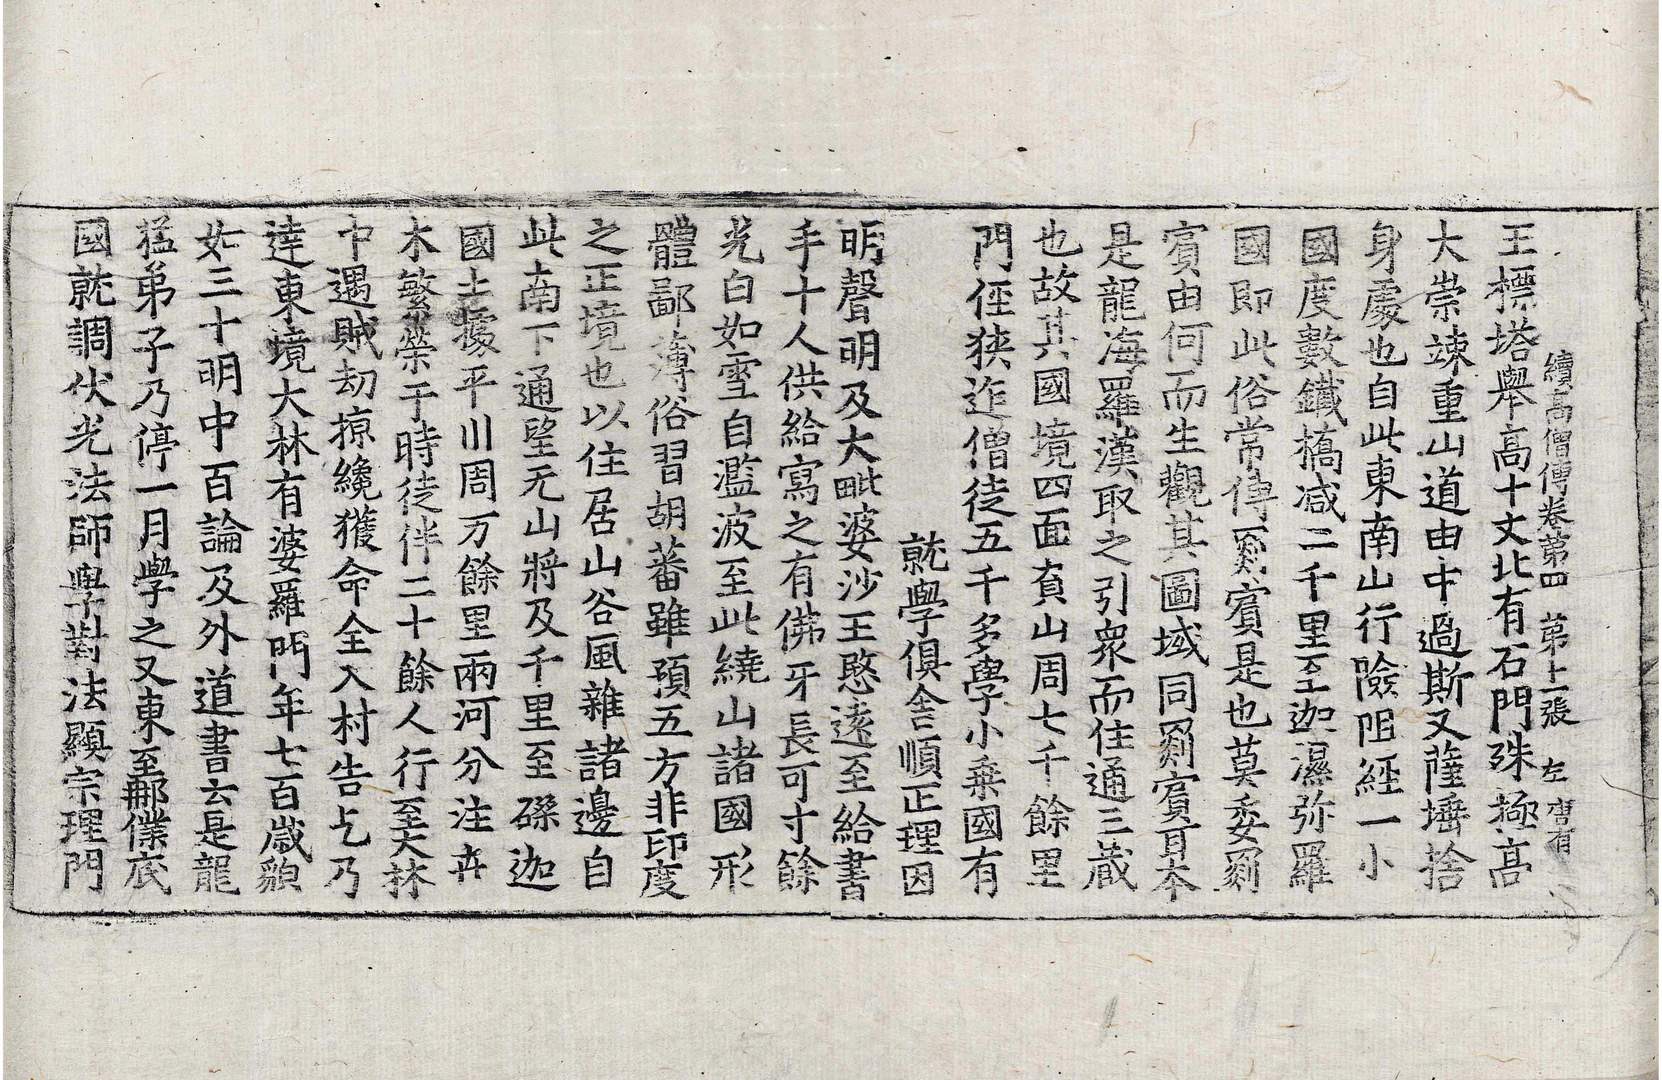 續高僧傳卷第四 第十一張 左
王標塔擧高十丈北有石門殊極高
大崇竦重山道由中過斯又薩埵捨
身處也自此東南山行險阻經一小
國度數鐵橋減二千里至迦濕弥羅
國即此俗常傳罽賓是也莫委罽
賓由何而生觀其圖域同罽賓耳本
是龍海羅漢取之引衆而住通三藏
也故其國境四面負山周七千餘里
門俓狹迮僧徒五千多學小乗國有
就學俱舍順正理因
明聲明及大毗婆沙王愍遠至給書
手十人供給寫之有佛牙長可寸餘
光白如雪自濫波至此繞山諸國形
體鄙薄俗習胡蕃雖預五方非印度
之正境也以住居山谷風雜諸邊自
此南下通望无山將及千里至磔迦
國土據平川周万餘里兩河分注卉
木繁榮于時徒伴二十餘人行至大林
中遇賊劫掠纔獲命全入村告乞乃
達東境大林有婆羅門年七百歲貌
如三十明中百論及外道書云是龍
猛弟子乃停一月學之又東至那僕底
國就調伏光法師學對法顯宗理門